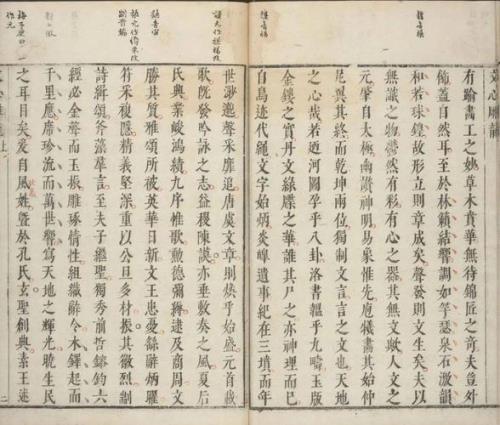 有踰畫工之妙草木賁華無待錦匠之奇夫豈外
飾蓋自然耳至於林籟結響調如竽瑟泉石激韻
和若球鍠故形立則章成矣聲發則文生矣夫以
無識之物鬱然有彩有心之器其無文歟人文之
元肇自太極幽讚神明易象惟先庖犧畫其始仲
尼翼其終而乾坤兩位獨制文言言之文也天地
之心哉若迺河圖孕乎八卦洛書韞乎九疇玉版
金鏤之實丹文綠牒之華誰其尸之亦神理而已
自鳥迹代繩文字始炳炎皥遺事紀在三墳而年
世渺邈聲采靡追唐虞文章則煥乎始盛元首載
歌既發吟詠之志益稷陳謨亦垂敷奏之風夏后
氏興業峻鴻績九序惟歌勲德彌縟逮及商周文
勝其質雅頌所被英華日新文王患憂繇辭炳曜
符采複隱精義堅深重以公旦多材振其徽烈制
詩緝頌斧藻羣言至夫子繼聖獨秀前哲鎔鈞六
經必金聲而玉振雕琢情性組織辭令木鐸起而
千里應席珍流而萬世響寫天地之輝光曉生民
之耳目矣爰自風姓曁於孔氏玄聖創典素王述